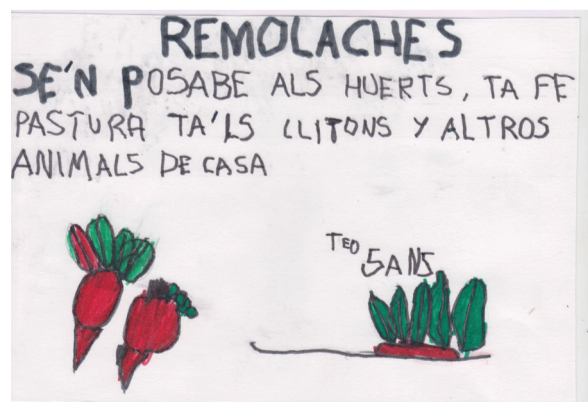 REMOLACHES
SE'N POSABE ALS HUERTS, TA FE
PASTURA TA'LS LLITONS Y ALTROS
ANIMALS DE CASA
TEO
SANS